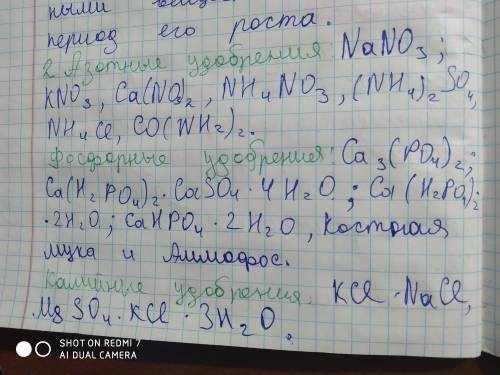 ными вещес
период его роста.
2. Азотные удобрения: NaNO3;
KNO3, Ca(NO3)2, NH4NO3, (NH4)2SO4,
NH4Cl, CO(NH2)2.
Фосфорные удобрения: Ca3(PO4)2;
Ca(H2PO4)2·CaSO4·4H2O; Ca(H2PO4)2
·2H2O; CaHPO4·2H2O, Костная
мука и Аммофос.
Калийные удобрения: KCl·NaCl,
MgSO4·KCl·3H2O.
SHOT ON REDMI 7
AI DUAL CAMERA